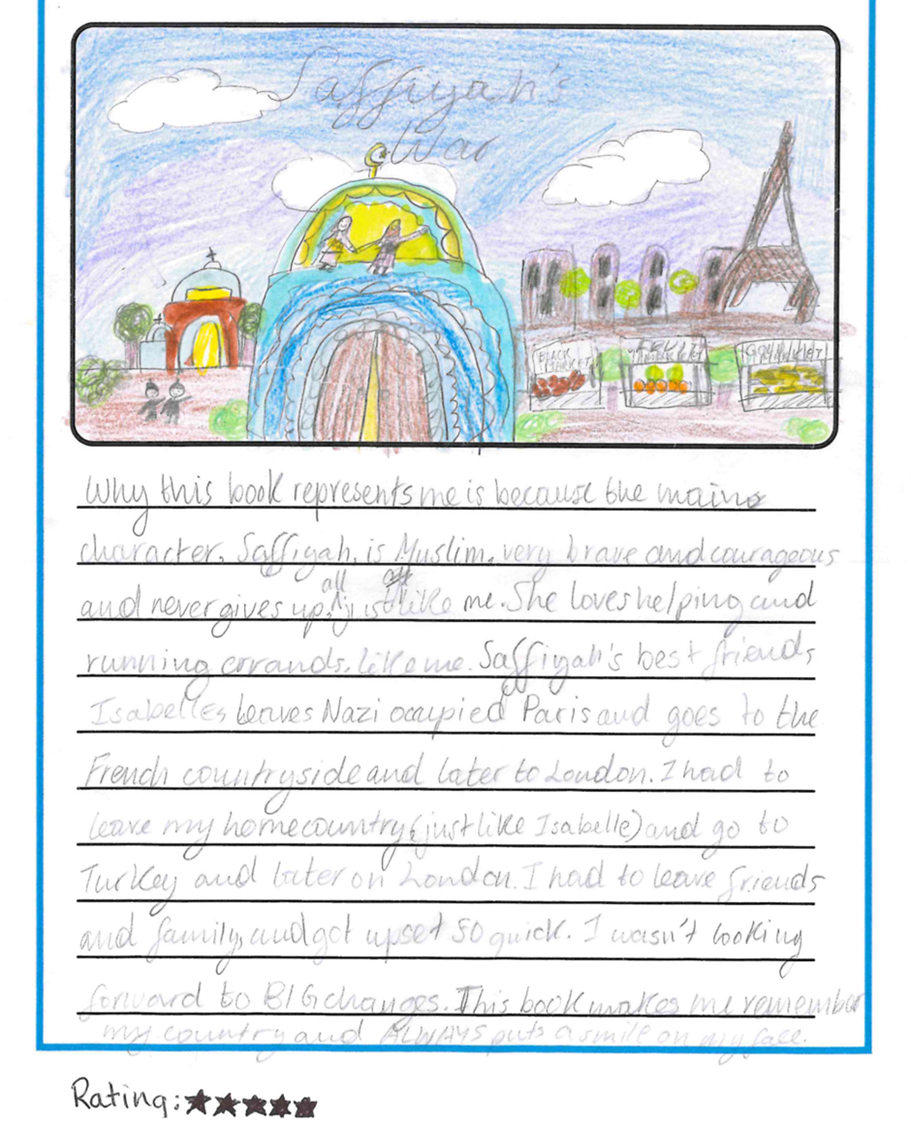 Saffiyah's
War
BLACK
MARKET
FRUIT
MARKET
Why this book represents me is because the main
character, Saffiyah, is Muslim, very brave and courageous
and never gives up, all just like me. She loves helping and
running errands, like me. Saffiyah's best friends
Isabelles leaves Nazi occupied Paris and goes to the
French countryside and later to London. I had to
leave my home country (just like Isabelle) and go to
Turkey and later on London. I had to leave friends
and family, and got upset so quick. I wasn't looking
forward to BIG changes. This book makes me remember
my country and ALWAYS puts a smile on my face.
Rating: ★★★★★